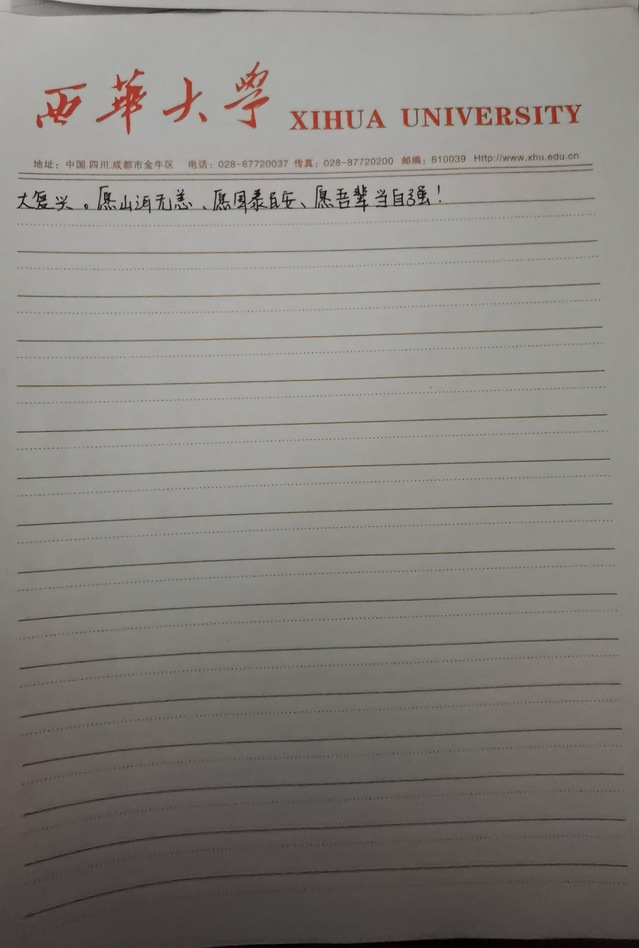 西華大學 XIHUA UNIVERSITY
地址：中国.四川.成都市金牛区 电话：028-87720037 传真：028-87720200 邮编：610039 Http://www.xhu.edu.cn
大复兴。愿山河无恙、愿国泰民安、愿吾辈当自强！